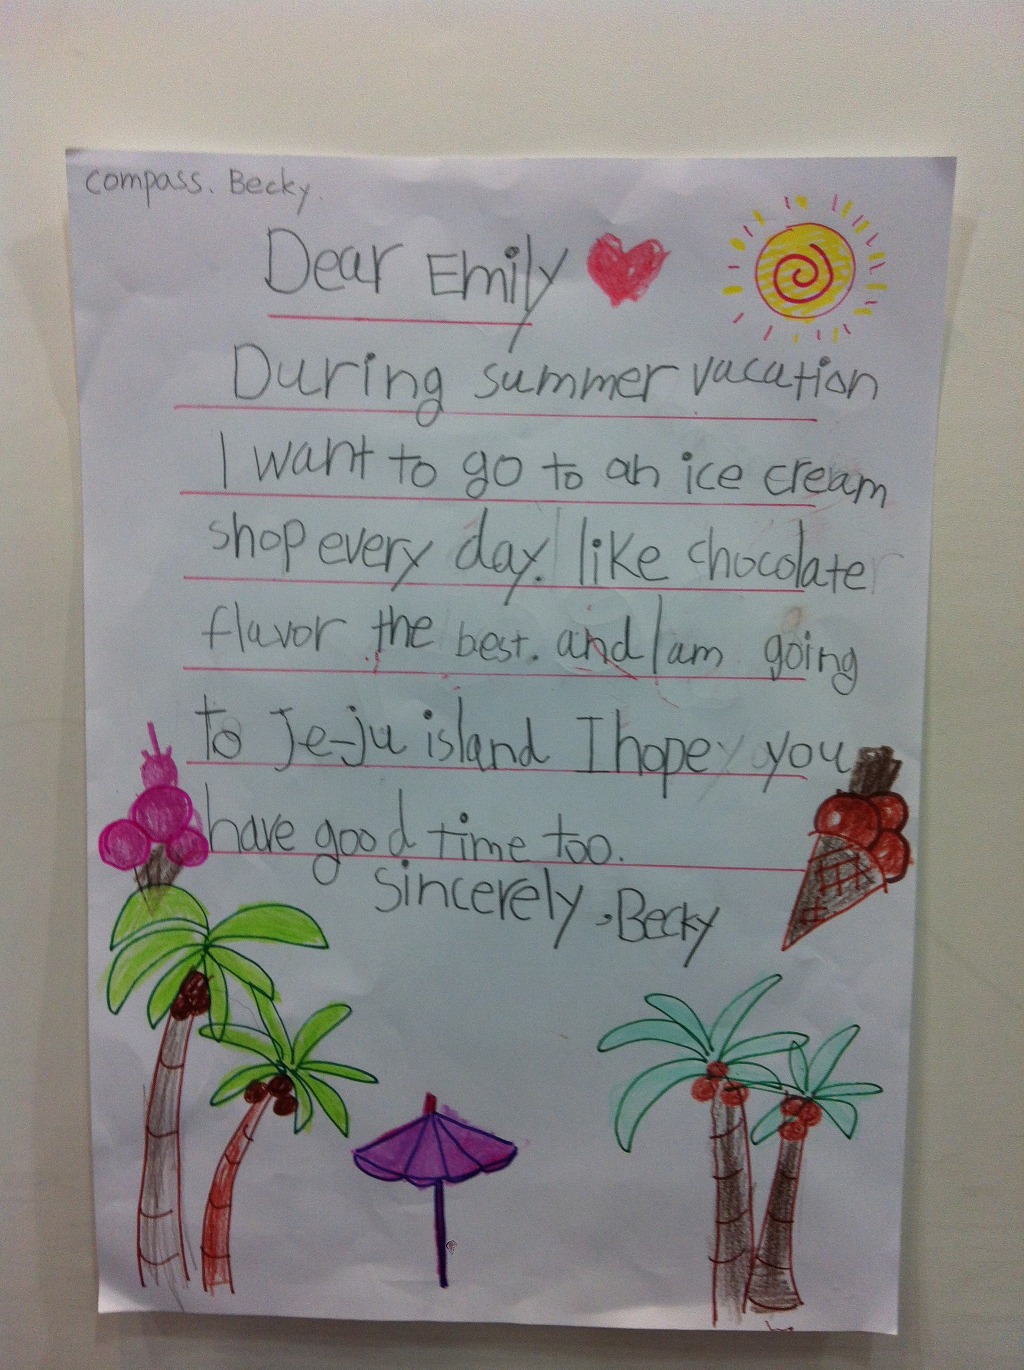 Compass. Becky.
Dear Emily
During summer vacation
I want to go to an ice cream
shop every day. I like chocolate
flavor the best. and I am going
to Je-ju island I hope you
have good time too.
Sincerely, Becky